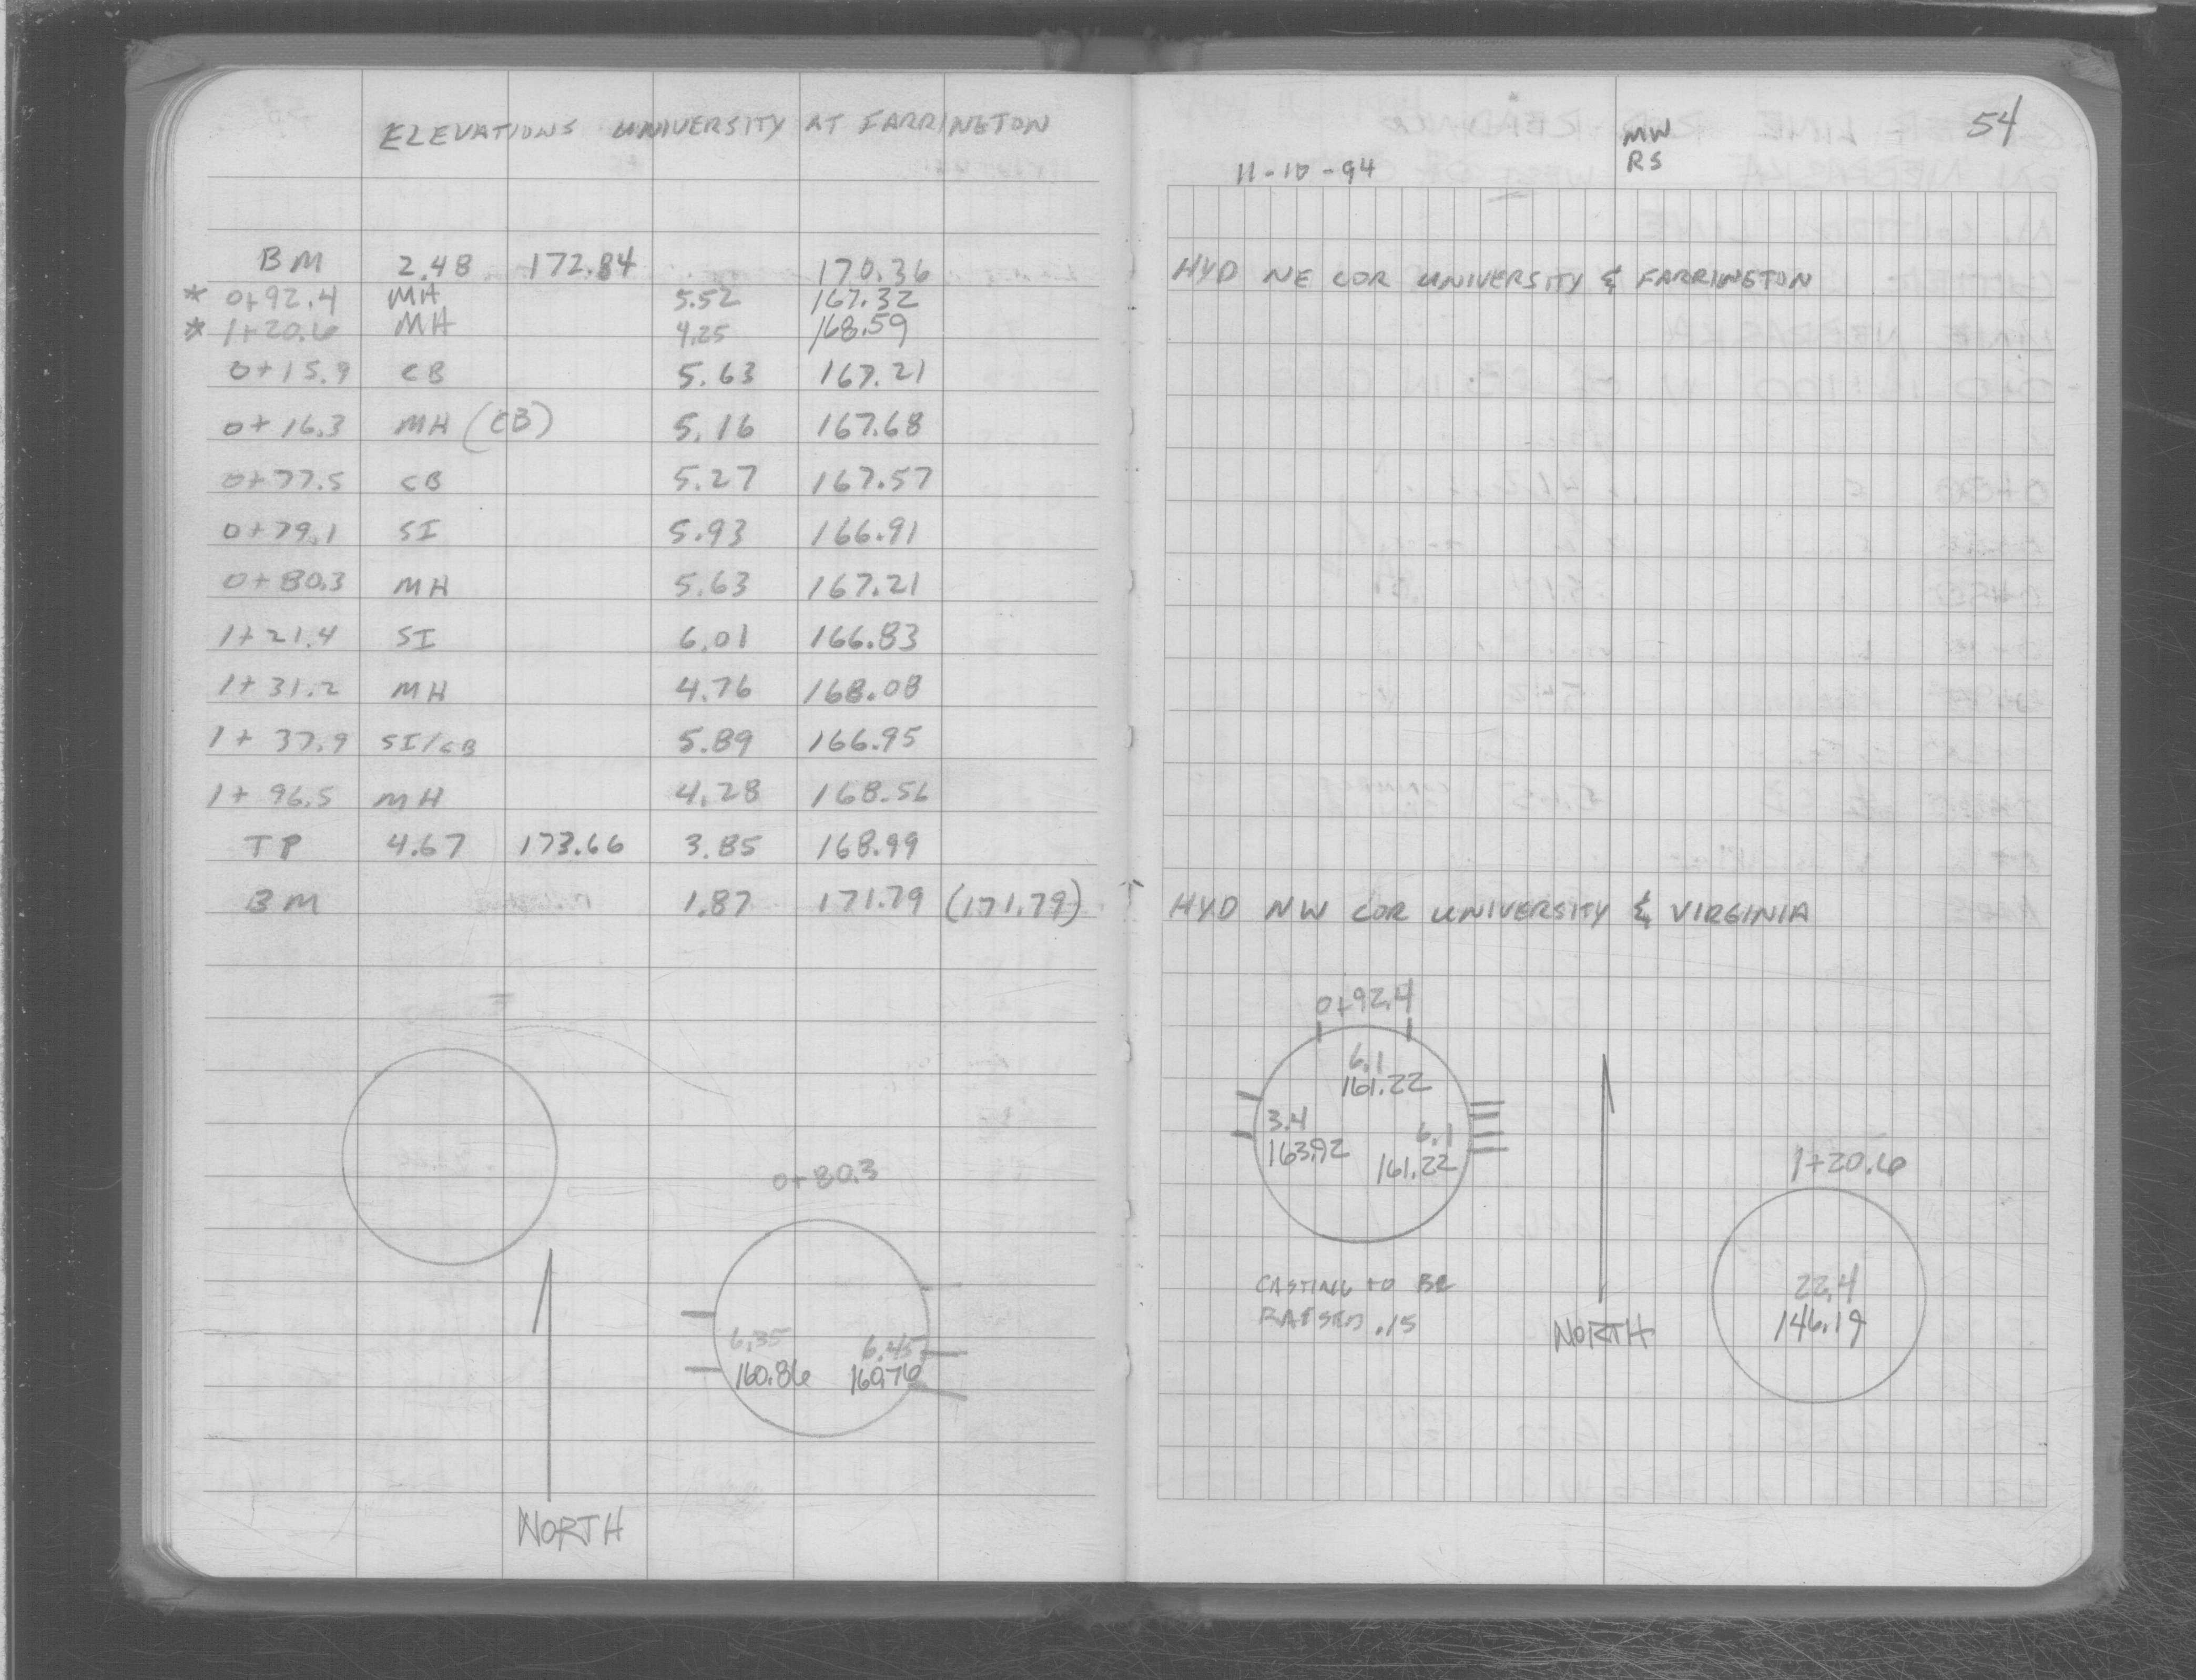 ELEVATIONS UNIVERSITY AT FARRINGTON
BM 2.48 172.84 170.36
* 0+92.4 MH 5.52 167.32
* 1+20.6 MH 4.25 168.59
0+15.9 CB 5.63 167.21
0+16.3 MH (CB) 5.16 167.68
0+77.5 CB 5.27 167.57
0+79.1 SI 5.93 166.91
0+80.3 MH 5.63 167.21
1+21.4 SI 6.01 166.83
1+31.2 MH 4.76 168.08
1+37.9 SI/CB 5.89 166.95
1+96.5 MH 4.28 168.56
TP 4.67 173.66 3.85 168.99
BM 1.87 171.79 (171.79)
0+80.3
6.35 6.45
160.86 160.76
NORTH
54
MW
RS
11-10-94
HYD NE COR UNIVERSITY & FARRINGTON
HYD NW COR UNIVERSITY & VIRGINIA
0+92.4
6.1
161.22
3.4
163.92
6.1
161.22
CASTING TO BE
RAISED .15
NORTH
1+20.6
22.4
146.19